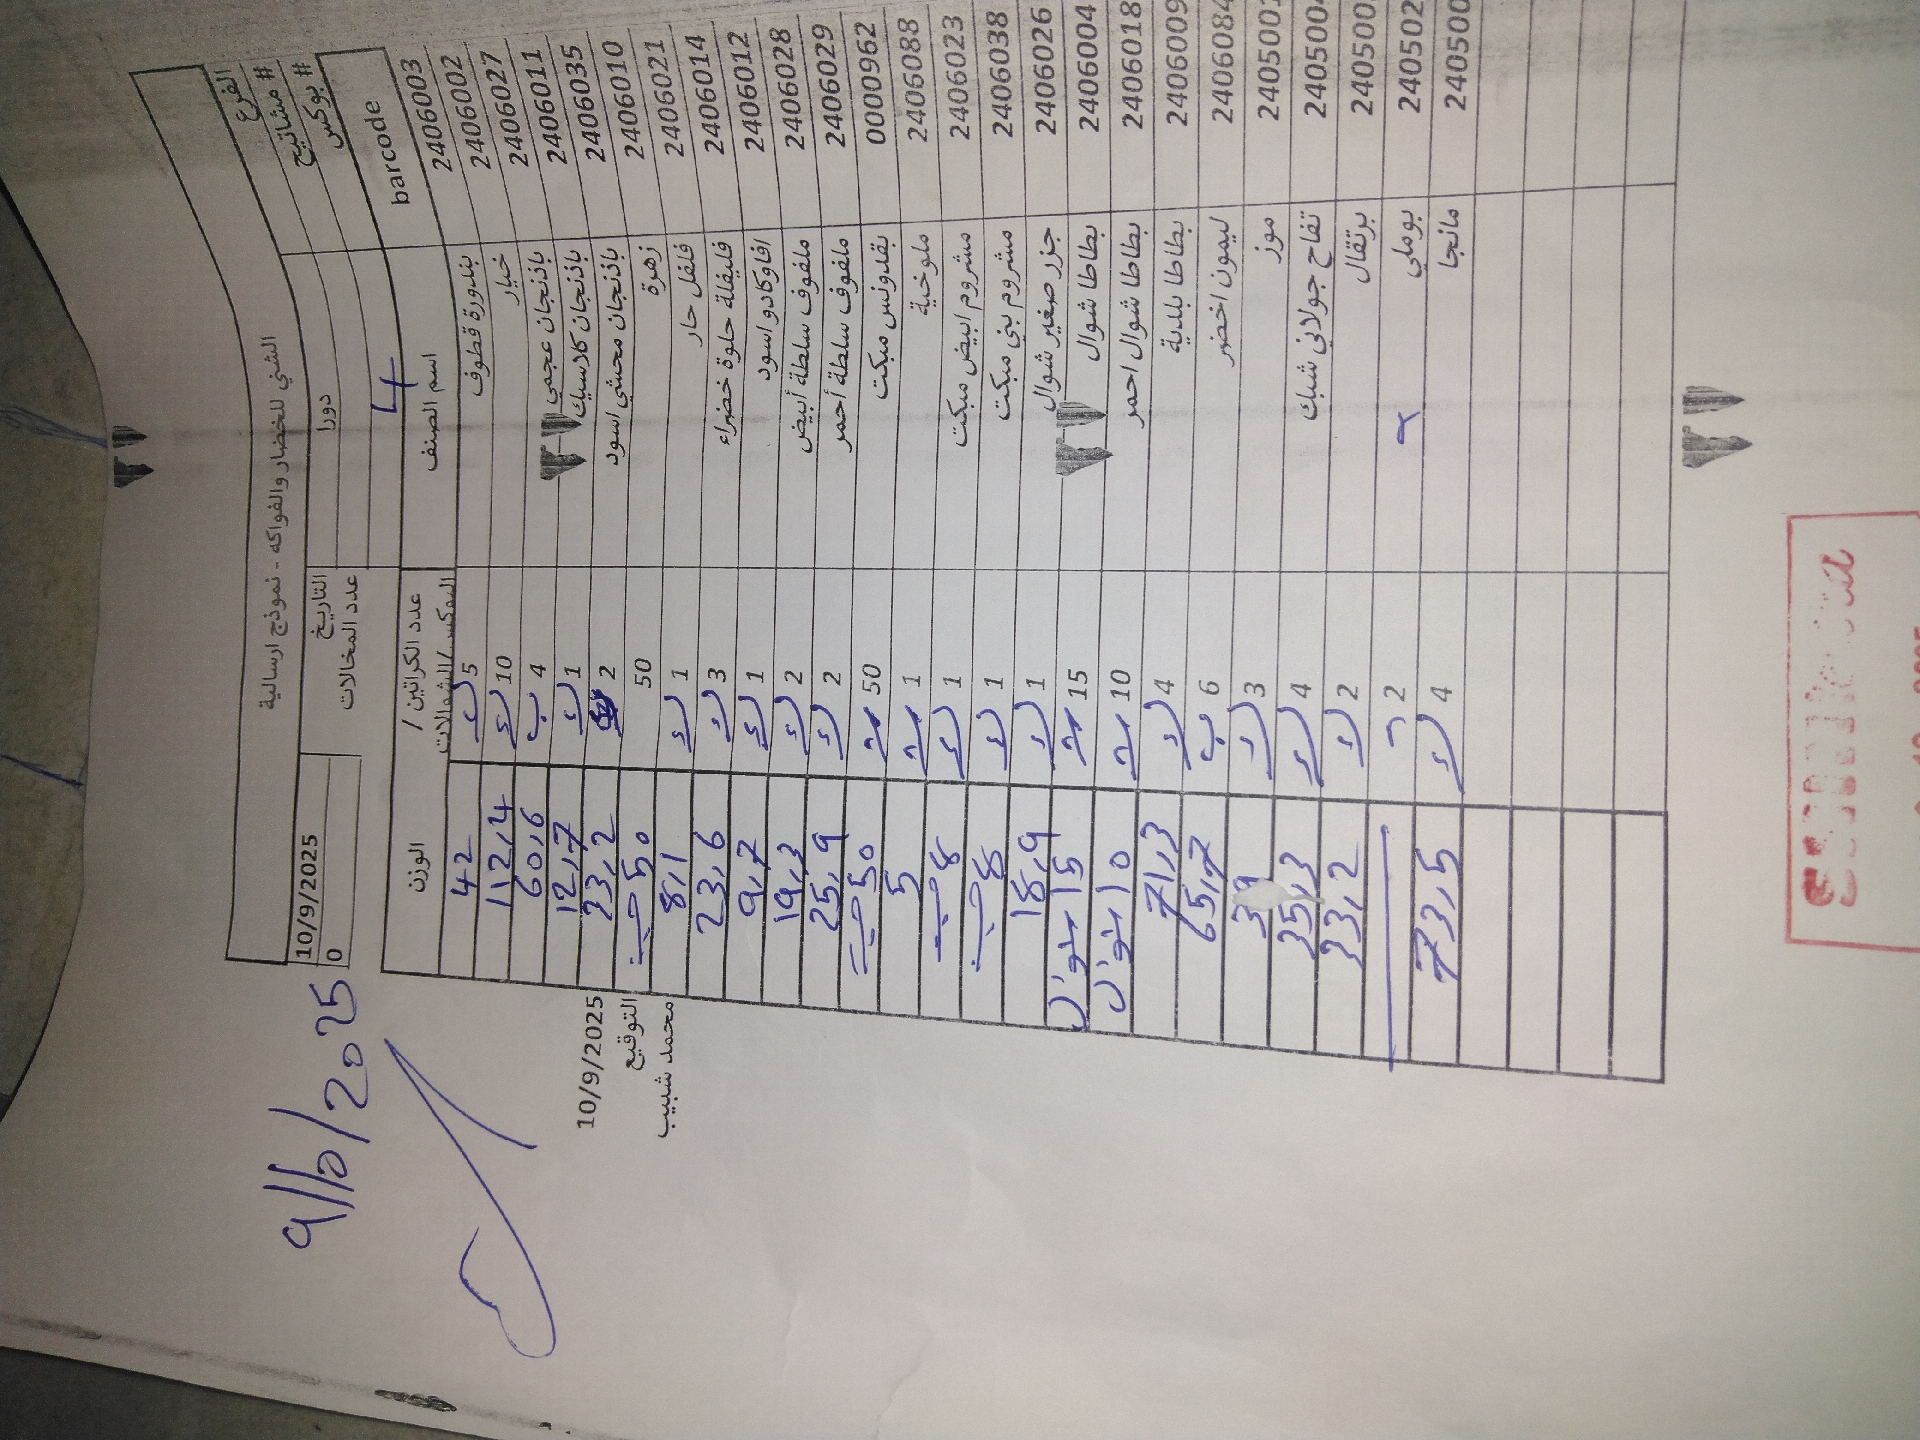 الشني للخضار والفواكه - نموذج ارسالية
الفرع دورا التاريخ 10/9/2025
# مشاتيح عدد المخالات 0
# بوكس 4
9/10/2025
barcode اسم الصنف عدد الكراتين / البوكس/الشوالات الوزن
2406003 بندورة قطوف 5 42
2406002 خيار 10 112,4
2406027 باذنجان عجمي ب 4 60,6
2406011 باذنجان كلاسيك 1 12,7
2406035 باذنجان محشي اسود 2 23,2
2406010 زهرة 50 50 حبة
2406021 فلفل حار 1 8,1
2406014 فليفلة حلوة خضراء 3 23,6
2406012 افاوكادو اسود 1 9,7
2406028 ملفوف سلطة أبيض 2 19,3
2406029 ملفوف سلطة أحمر 2 25,9
0000962 بقدونس مبكت 50 50 حبة
2406088 ملوخية 1 5
2406023 مشروم ابيض مبكت 1 8 حبة
2406038 مشروم بني مبكت 1 8 حبة
2406026 جزر صغير شوال 1 18,9
2406004 بطاطا شوال 15 15 شوال
2406018 بطاطا شوال احمر 10 10 شوال
2406009 بطاطا بلدية 4 71,3
2406084 ليمون اخضر ب 6 65,7
240500 موز 3
240500 تفاح جولاني شبك 4 35,3
240500 برتقال 2 33,2
240502 بوملي 2
240500 مانجا 4 73,5
10/9/2025
التوقيع
محمد شبيب